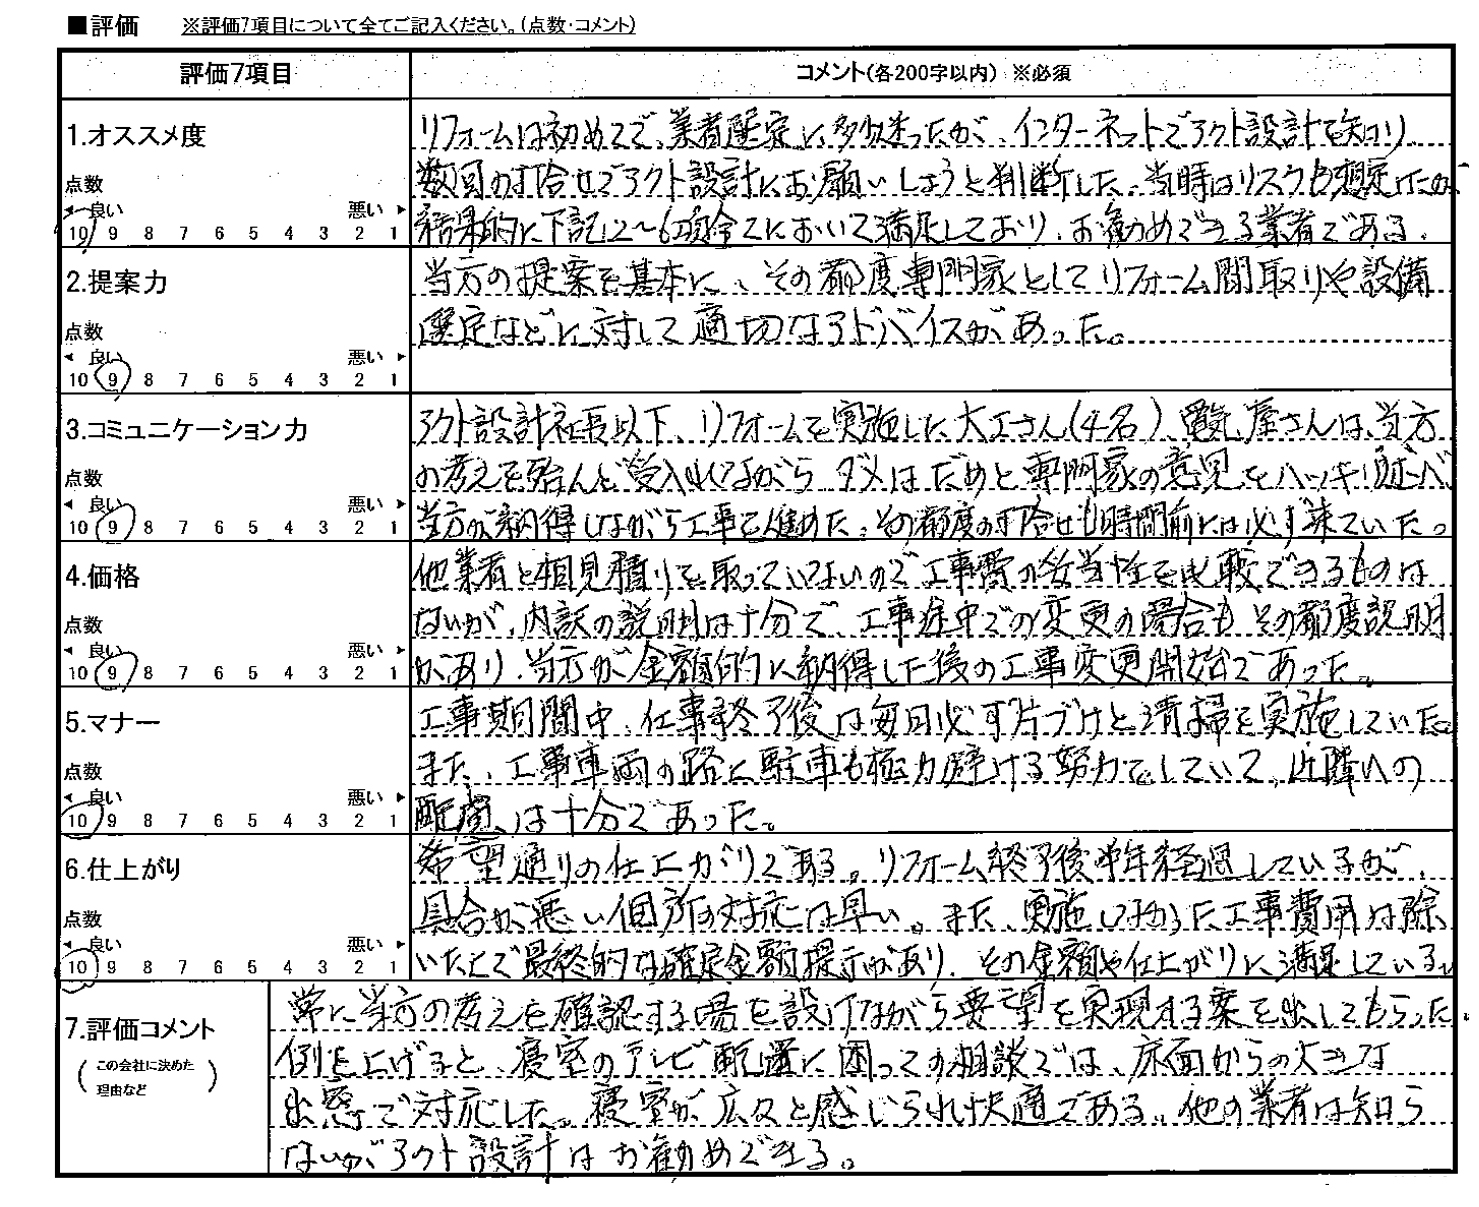 ■評価 ※評価7項目について全てご記入ください。(点数・コメント)
評価7項目
コメント(各200字以内) ※必須
1.オススメ度
点数
良い 悪い
10 9 8 7 6 5 4 3 2 1
リフォームは初めてで、業者選定に多少迷ったが、インターネットでアクト設計を知り
数回の打合せでアクト設計にお願いしようと判断した。当時はリスクも想定したが
結果的に下記2～6項全てにおいて満足しており、お勧めできる業者である。
2.提案力
点数
良い 悪い
10 9 8 7 6 5 4 3 2 1
当方の提案を基本に、その都度専門家としてリフォーム間取りや設備
選定などに対して適切なアドバイスがあった。
3.コミュニケーション力
点数
良い 悪い
10 9 8 7 6 5 4 3 2 1
アクト設計社長以下、リフォームを実施した大工さん(4名)、電気屋さんは、当方
の考えを殆んど受入れながら ダメはだめと専門家の意見をハッキリ述べ
当方が納得しながら工事を進めた。その都度の打合せも時間前には必ず来ていた。
4.価格
点数
良い 悪い
10 9 8 7 6 5 4 3 2 1
他業者と相見積りを取っていないので工事費の妥当性を比較できるものは
ないが、内訳の説明は十分で、工事途中での変更の場合も その都度説明
があり、当方が金額的に納得した後の工事変更開始であった。
5.マナー
点数
良い 悪い
10 9 8 7 6 5 4 3 2 1
工事期間中、仕事終了後は毎日必ず片づけと清掃を実施していた。
また、工事車両の路上駐車も極力避ける努力をしていて、近隣への
配慮は十分であった。
6.仕上がり
点数
良い 悪い
10 9 8 7 6 5 4 3 2 1
希望通りの仕上がりである。リフォーム終了後半年経過しているが、
具合が悪い個所の対応は早い。また、実施しなかった工事費用は除
いた上で最終的な確定金額提示があり、その金額や仕上がりに満足している。
7.評価コメント
(この会社に決めた
理由など)
常に当方の考えを確認する場を設けながら要望を実現する案を出してもらった。
例を上げると、寝室のテレビ配置に困っての相談では、床面からの大きな
出窓で対応した。寝室が広々と感じられ快適である。他の業者は知ら
ないがアクト設計はお勧めできる。